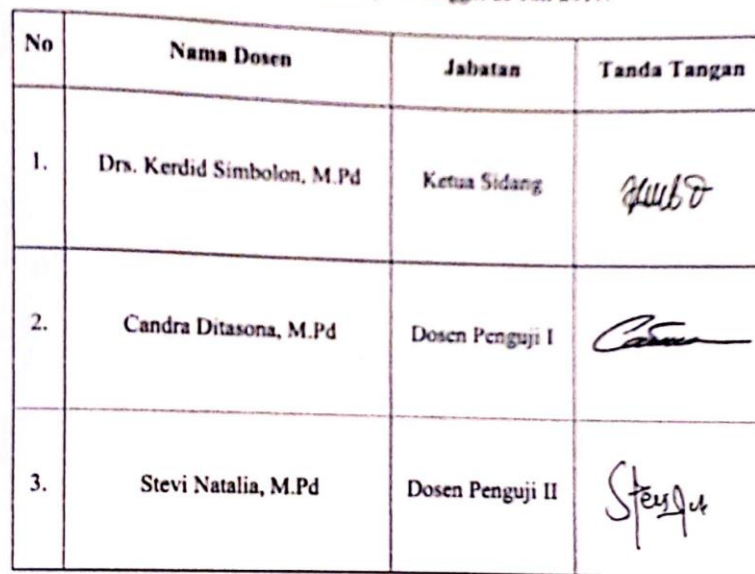 No Nama Dosen Jabatan Tanda Tangan
1. Drs. Kerdid Simbolon, M.Pd Ketua Sidang
2. Candra Ditasona, M.Pd Dosen Penguji I
3. Stevi Natalia, M.Pd Dosen Penguji II